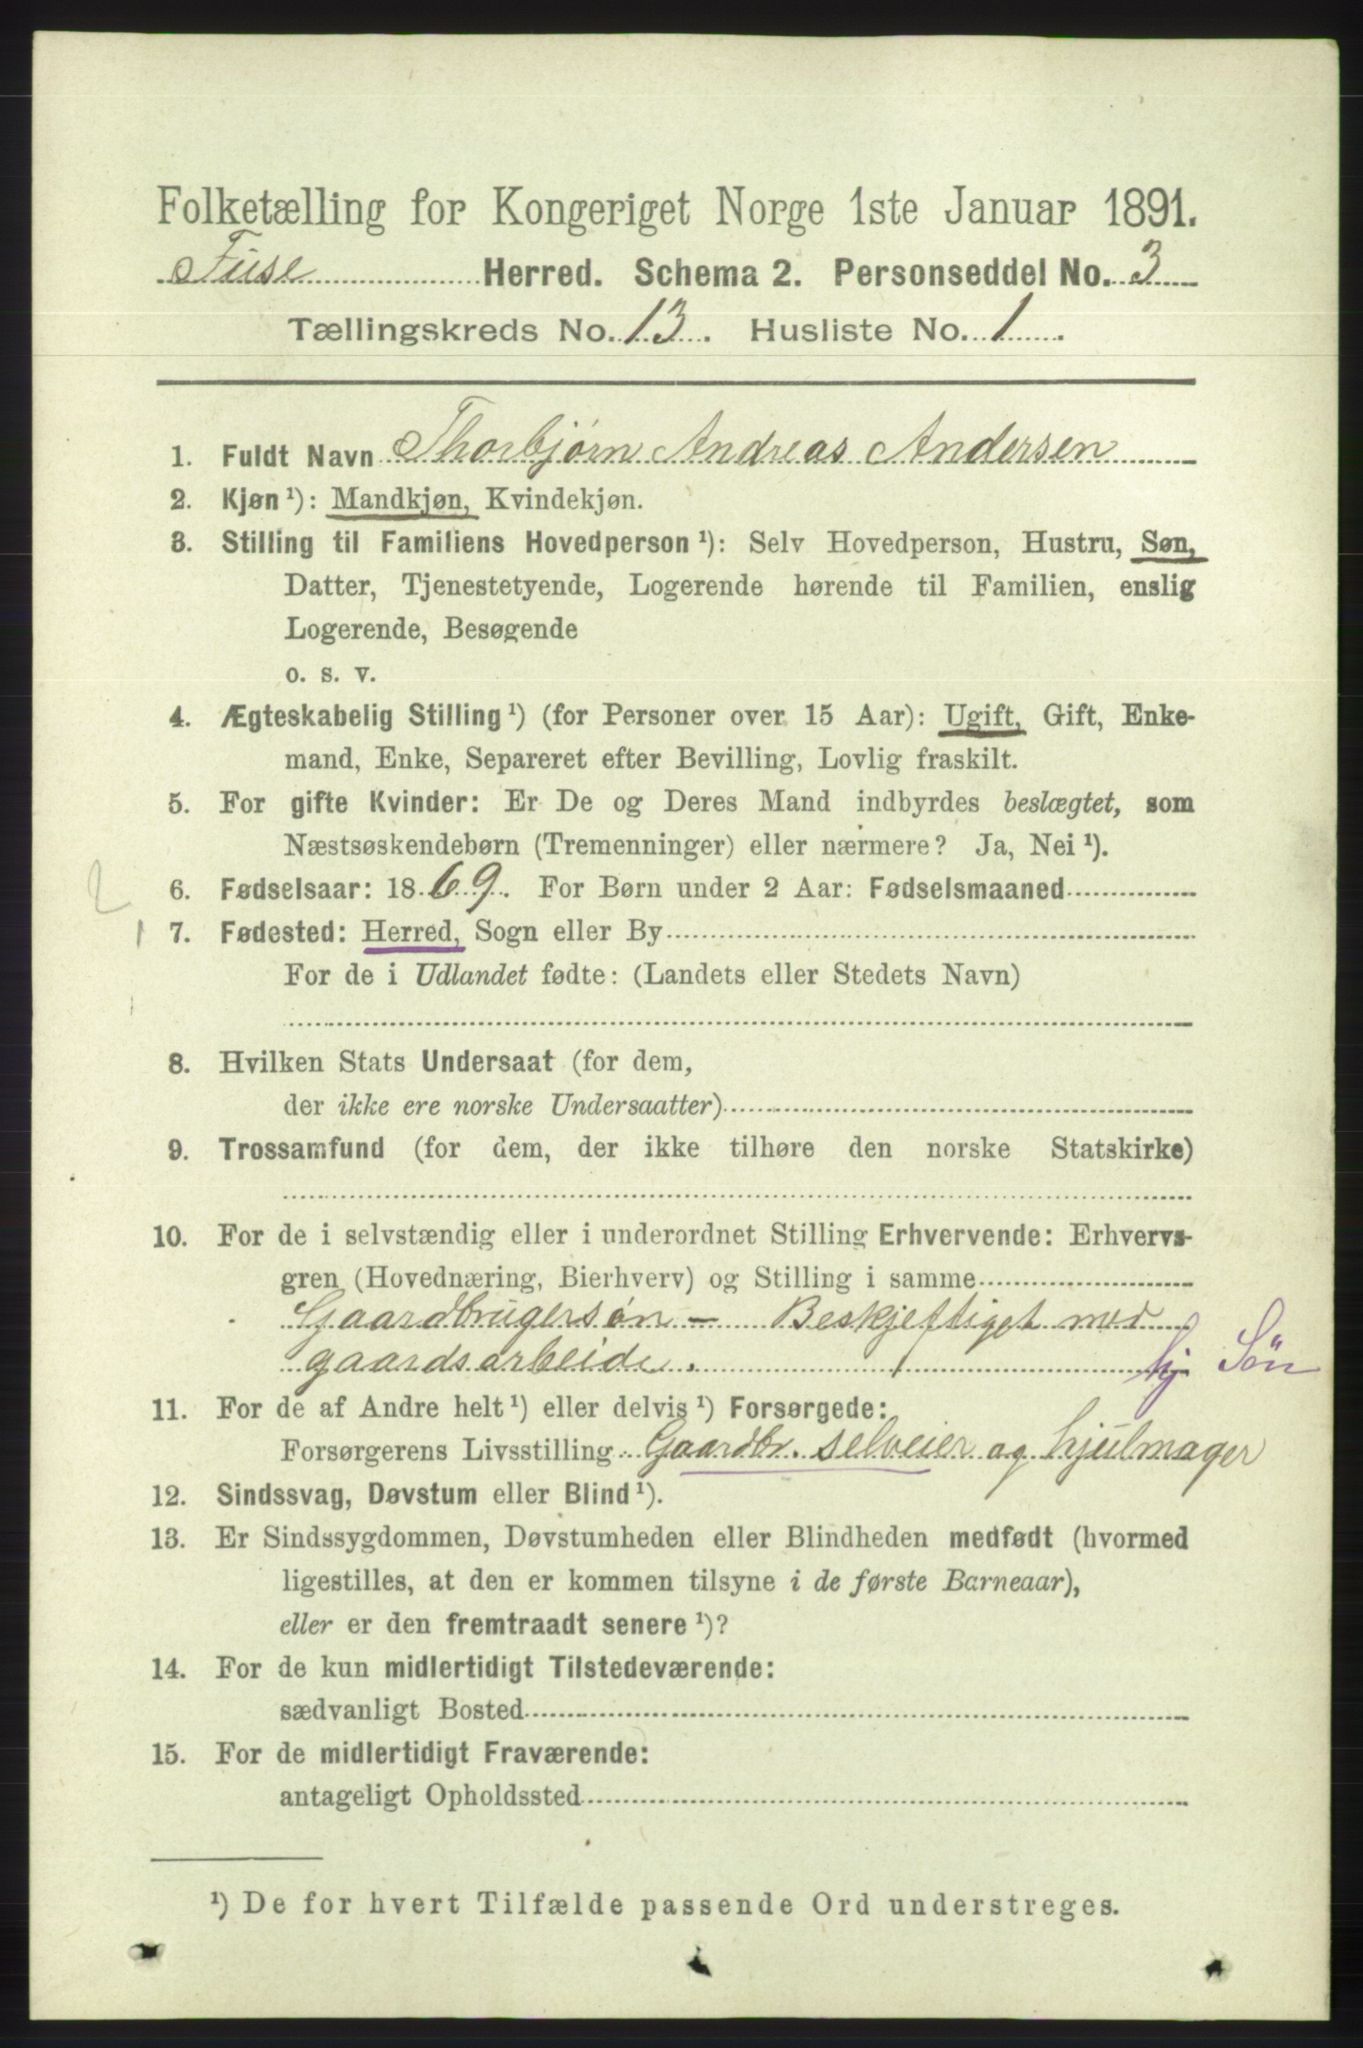 Folketælling for Kongeriget Norge 1ste Januar 1891.
Fuse Herred. Schema 2. Personseddel No. 3
Tællingskreds No. 13. Husliste No. 1.
1. Fuldt Navn Thorbjørn Andreas Andersen
2. Kjøn ¹): Mandkjøn, Kvindekjøn.
3. Stilling til Familiens Hovedperson ¹): Selv Hovedperson, Hustru, Søn,
Datter, Tjenestetyende, Logerende hørende til Familien, enslig
Logerende, Besøgende
o. s. v.
4. Ægteskabelig Stilling ¹) (for Personer over 15 Aar): Ugift, Gift, Enke-
mand, Enke, Separeret efter Bevilling, Lovlig fraskilt.
5. For gifte Kvinder: Er De og Deres Mand indbyrdes beslægtet, som
Næstsøskendebørn (Tremenninger) eller nærmere? Ja, Nei ¹).
2
6. Fødselsaar: 1869. For Børn under 2 Aar: Fødselsmaaned
1 7. Fødested: Herred, Sogn eller By
For de i Udlandet fødte: (Landets eller Stedets Navn)
8. Hvilken Stats Undersaat (for dem,
der ikke ere norske Undersaatter)
9. Trossamfund (for dem, der ikke tilhøre den norske Statskirke)
10. For de i selvstændig eller i underordnet Stilling Erhvervende: Erhvervs-
gren (Hovednæring, Bierhverv) og Stilling i samme
Gaardbrugersøn - Beskjeftiget med
gaardsarbeide. hj. Sön
11. For de af Andre helt ¹) eller delvis ¹) Forsørgede:
Forsørgerens Livsstilling Gaardbr. selveier og hjulmager
12. Sindssvag, Døvstum eller Blind ¹).
13. Er Sindssygdommen, Døvstumheden eller Blindheden medfødt (hvormed
ligestilles, at den er kommen tilsyne i de første Barneaar),
eller er den fremtraadt senere ¹)?
14. For de kun midlertidigt Tilstedeværende:
sædvanligt Bosted
15. For de midlertidigt Fraværende:
antageligt Opholdssted
¹) De for hvert Tilfælde passende Ord understreges.